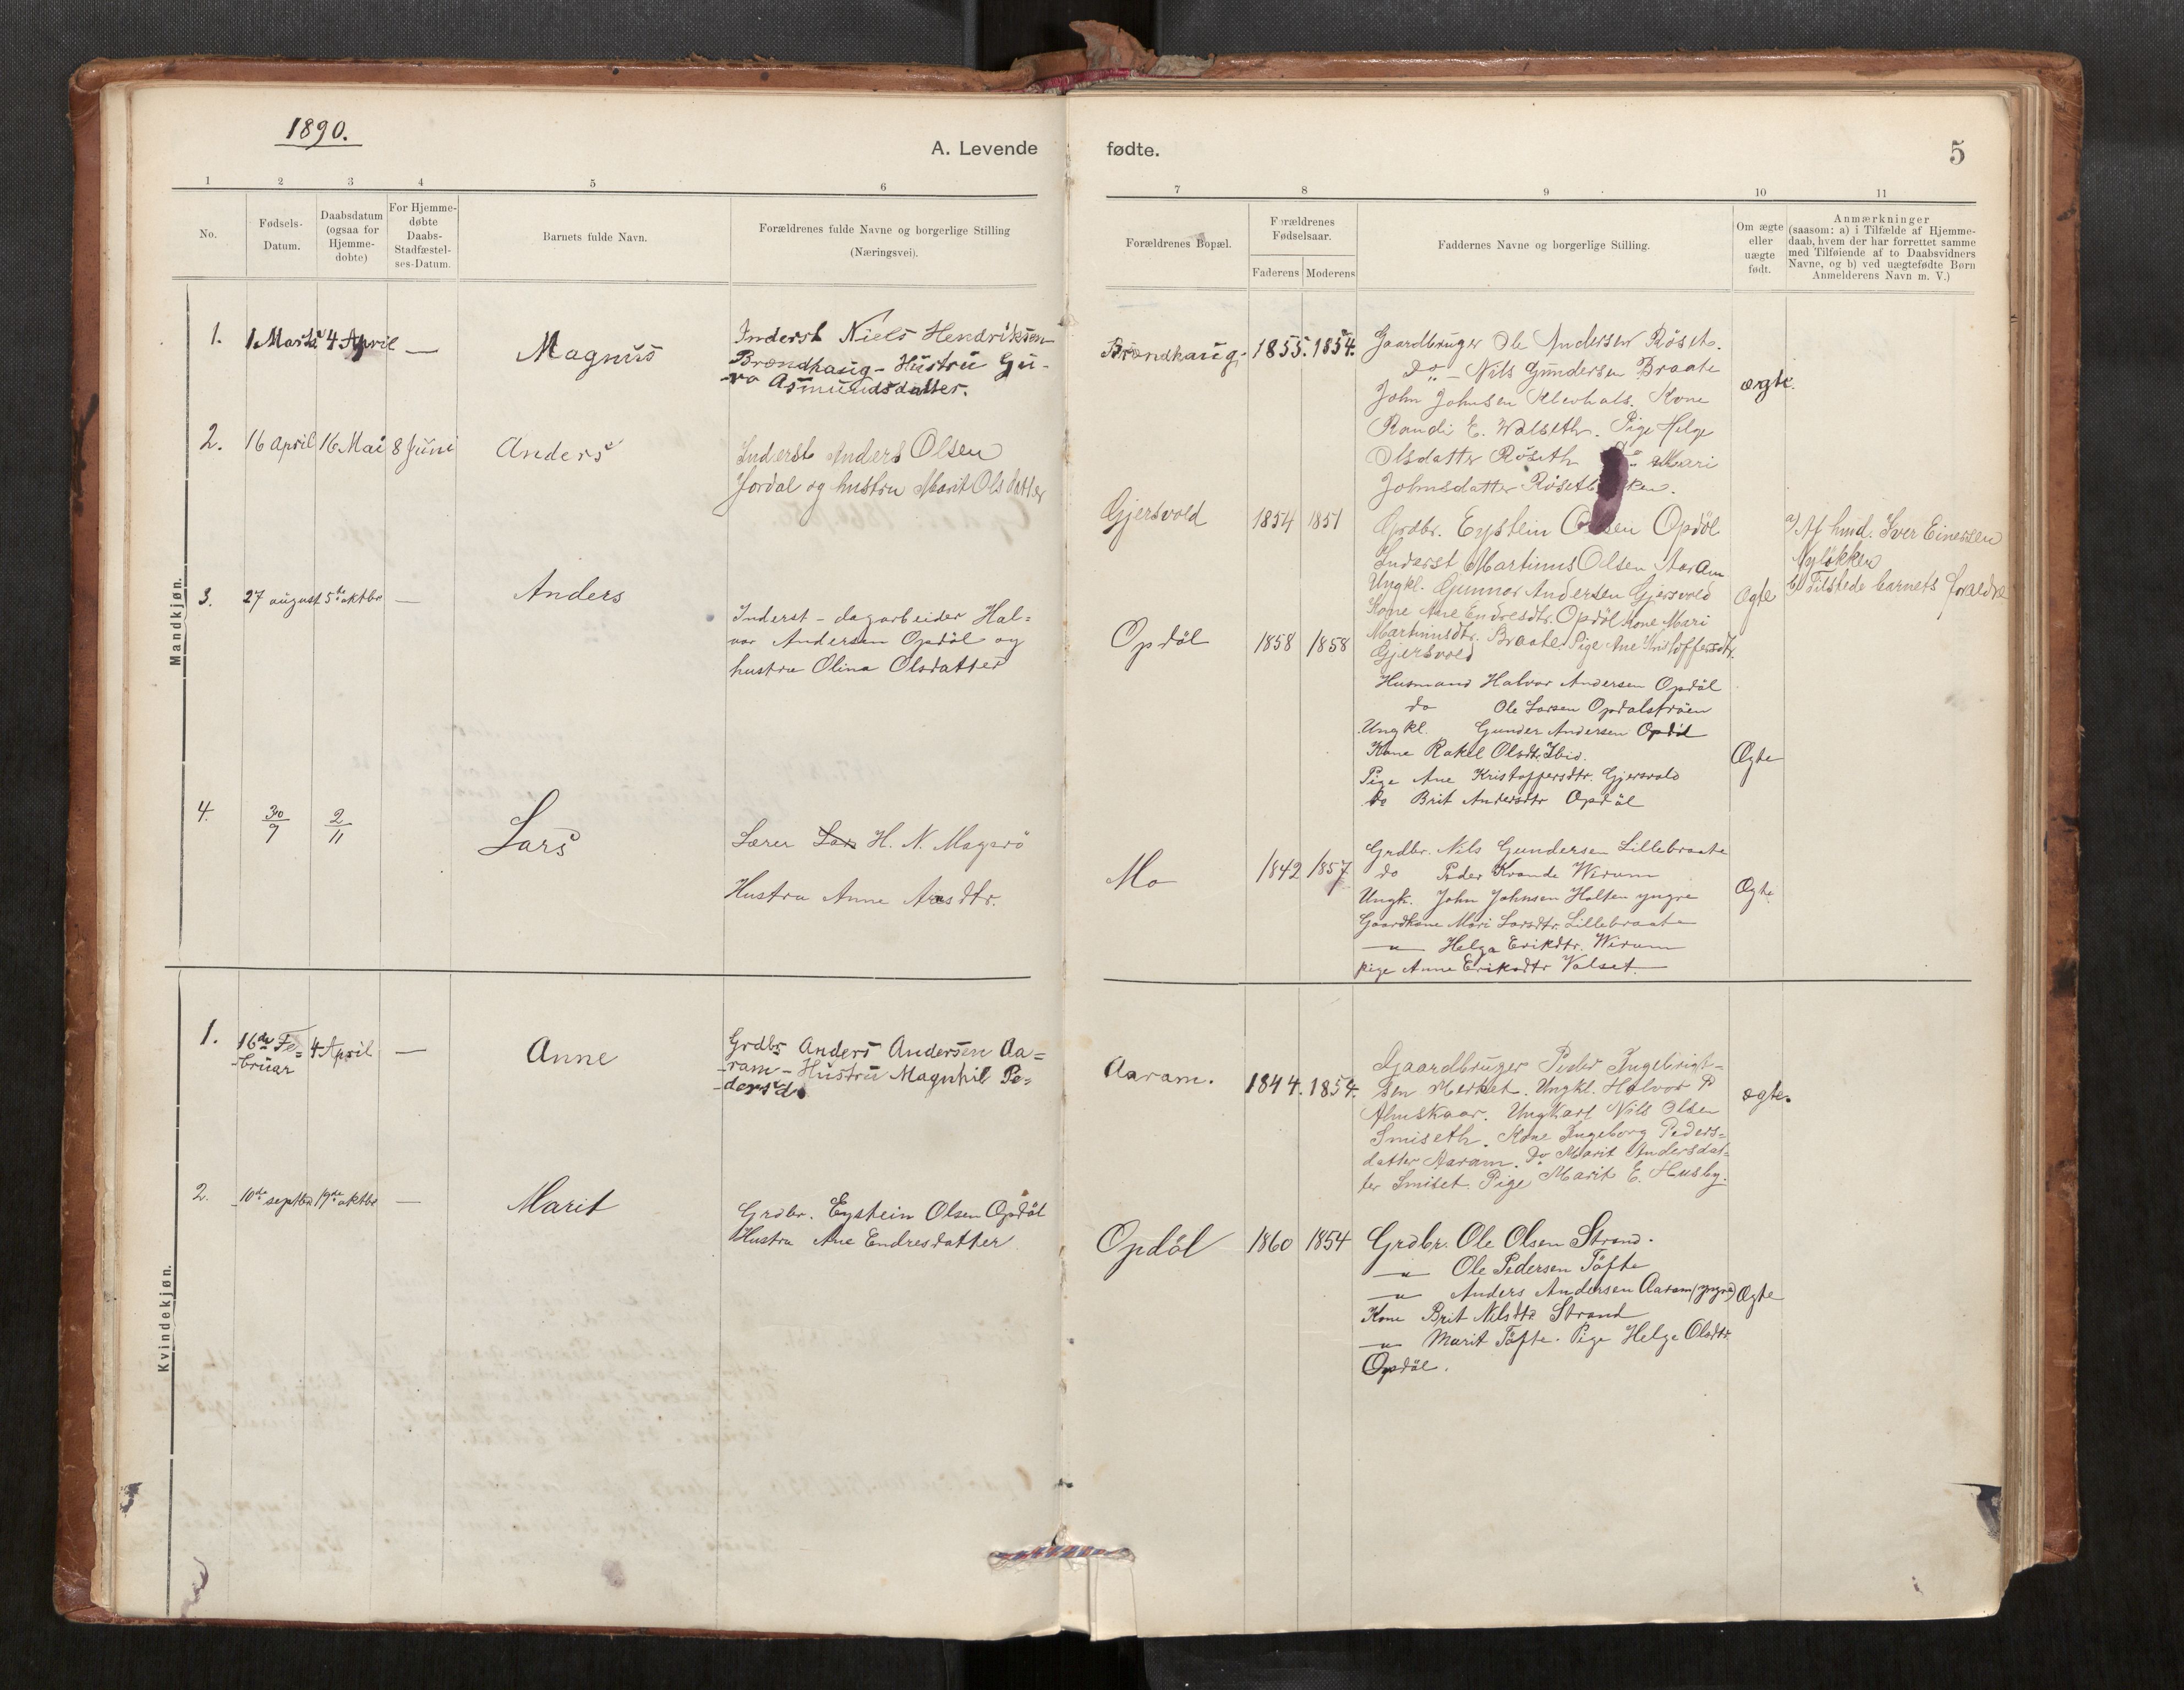 1890.
A. Levende
fødte.
5
1
2
3
4
5
6
7
8
9
10
11
No.
Fødsels-
Datum.
Daabsdatum
(ogsaa for
Hjemme-
døbte)
For Hjemme-
døbte
Daabs-
Stadfæstel-
ses-Datum.
Barnets fulde Navn.
Forældrenes fulde Navne og borgerlige Stilling
(Næringsvei).
Forældrenes Bopæl.
Forældrenes
Fødselsaar.
Faderens
Moderens
Faddernes Navne og borgerlige Stilling.
Om ægte
eller
uægte
født.
Anmærkninger
(saasom: a) i Tilfælde af Hjemme-
daab, hvem der har forrettet samme
med Tilføiende af to Daabsvidners
Navne, og b) ved uægtefødte Børn
Anmelderens Navn m. V.)
Mandkjøn.
1.
1 Marts
4 April
—
Magnus
Inderst Niels Hendriksen
Brøndhaug - Hustru Gu-
ro Asmundsdatter.
Brøndhaug.
1855.
1854.
Gaardbruger Ole Andersen Röset.
Do - Nils Gundersen Braate
John Johnsen Klevhals. Kone
Randi E. Walseth. Pige Helge
Olsdatter Röseth Mari
Johnsdatter
ægte.
2.
16 April
16 Mai
8 Juni
Anders
Inderst Anders Olsen
Jordal og hustru Marit Olsdatter
Gjersvold
1854
1851
Grdbr. Eystein Olsen Opdöl
Inderst Martinus Olsen Aaram
Ungkl. Gunnar Andersen Gjersvold
Kone Ane Endresdtr. Opdöl Kone Mari
Martinusdtr. Braaten Pige Ane Kristoffersdtr.
Gjersvold
Ægte
a) Af husd. Iver Einersen
Nylökken
b) Tilstede barnets forældre
3.
27 august
5te oktbr
—
Anders
Inderst - dagarbeider Hal-
vor Andersen Opdöl og
hustru Olina Olsdatter
Opdöl
1858
1858
Husmand Halvor Andersen Opdöl
do Ole Larsen Opdalströen
Ungkl. Gunder Andersen Opdöl
Kone Rakel Olsdtr. Ibid.
Pige Ane Kristoffersdtr. Gjersvold
do Brit Andersdtr Opdöl
Ægte
4.
30/9
2/11
Lars
Lærer Lars H. N. Magerö
Hustru Anne Aasdtr.
Mo
1842
1857
Grdbr. Nils Gundersen Lillebraate
do Peder Kvande Wirum
Ungk. John Johnsen Holten yngre
Gaardkone Mari Larsdtr. Lillebraate
—"— Helga Erikdtr. Wirum
pige Anne Eriksdtr Valset
Ægte
Kvindekjøn.
1.
16de Fe-
bruar
4 April
—
Anne
Grdbr Anders Andersen Aa-
ram - Hustru Magnhil Pe-
dersd
Aaram.
1844.
1854.
Gaardbruger Peder Ingebrigt-
sen Merket. Ungkl. Halvor P
Almskaar. Ungkarl Nils Olsen
Smiseth. Kone Ingeborg Peders-
datter Aaram. Do Marit Andersdat-
ter Smiset. Pige Marit E. Husby.
ægte.
2.
10de septbr
19de oktbr
—
Marit
Grdbr. Eystein Olsen Opdöl
Hustru Ane Endresdatter
Opdöl
1860
1854
Grdbr. Ole Olsen Strand.
—"— Ole Pedersen Töfte
—"— Anders Andersen Aaram (yngre)
Kone Brit Nilsdtr Strand
—"— Marit Töfte. Pige Helge Olsdtr
Opdöl.
Ægte